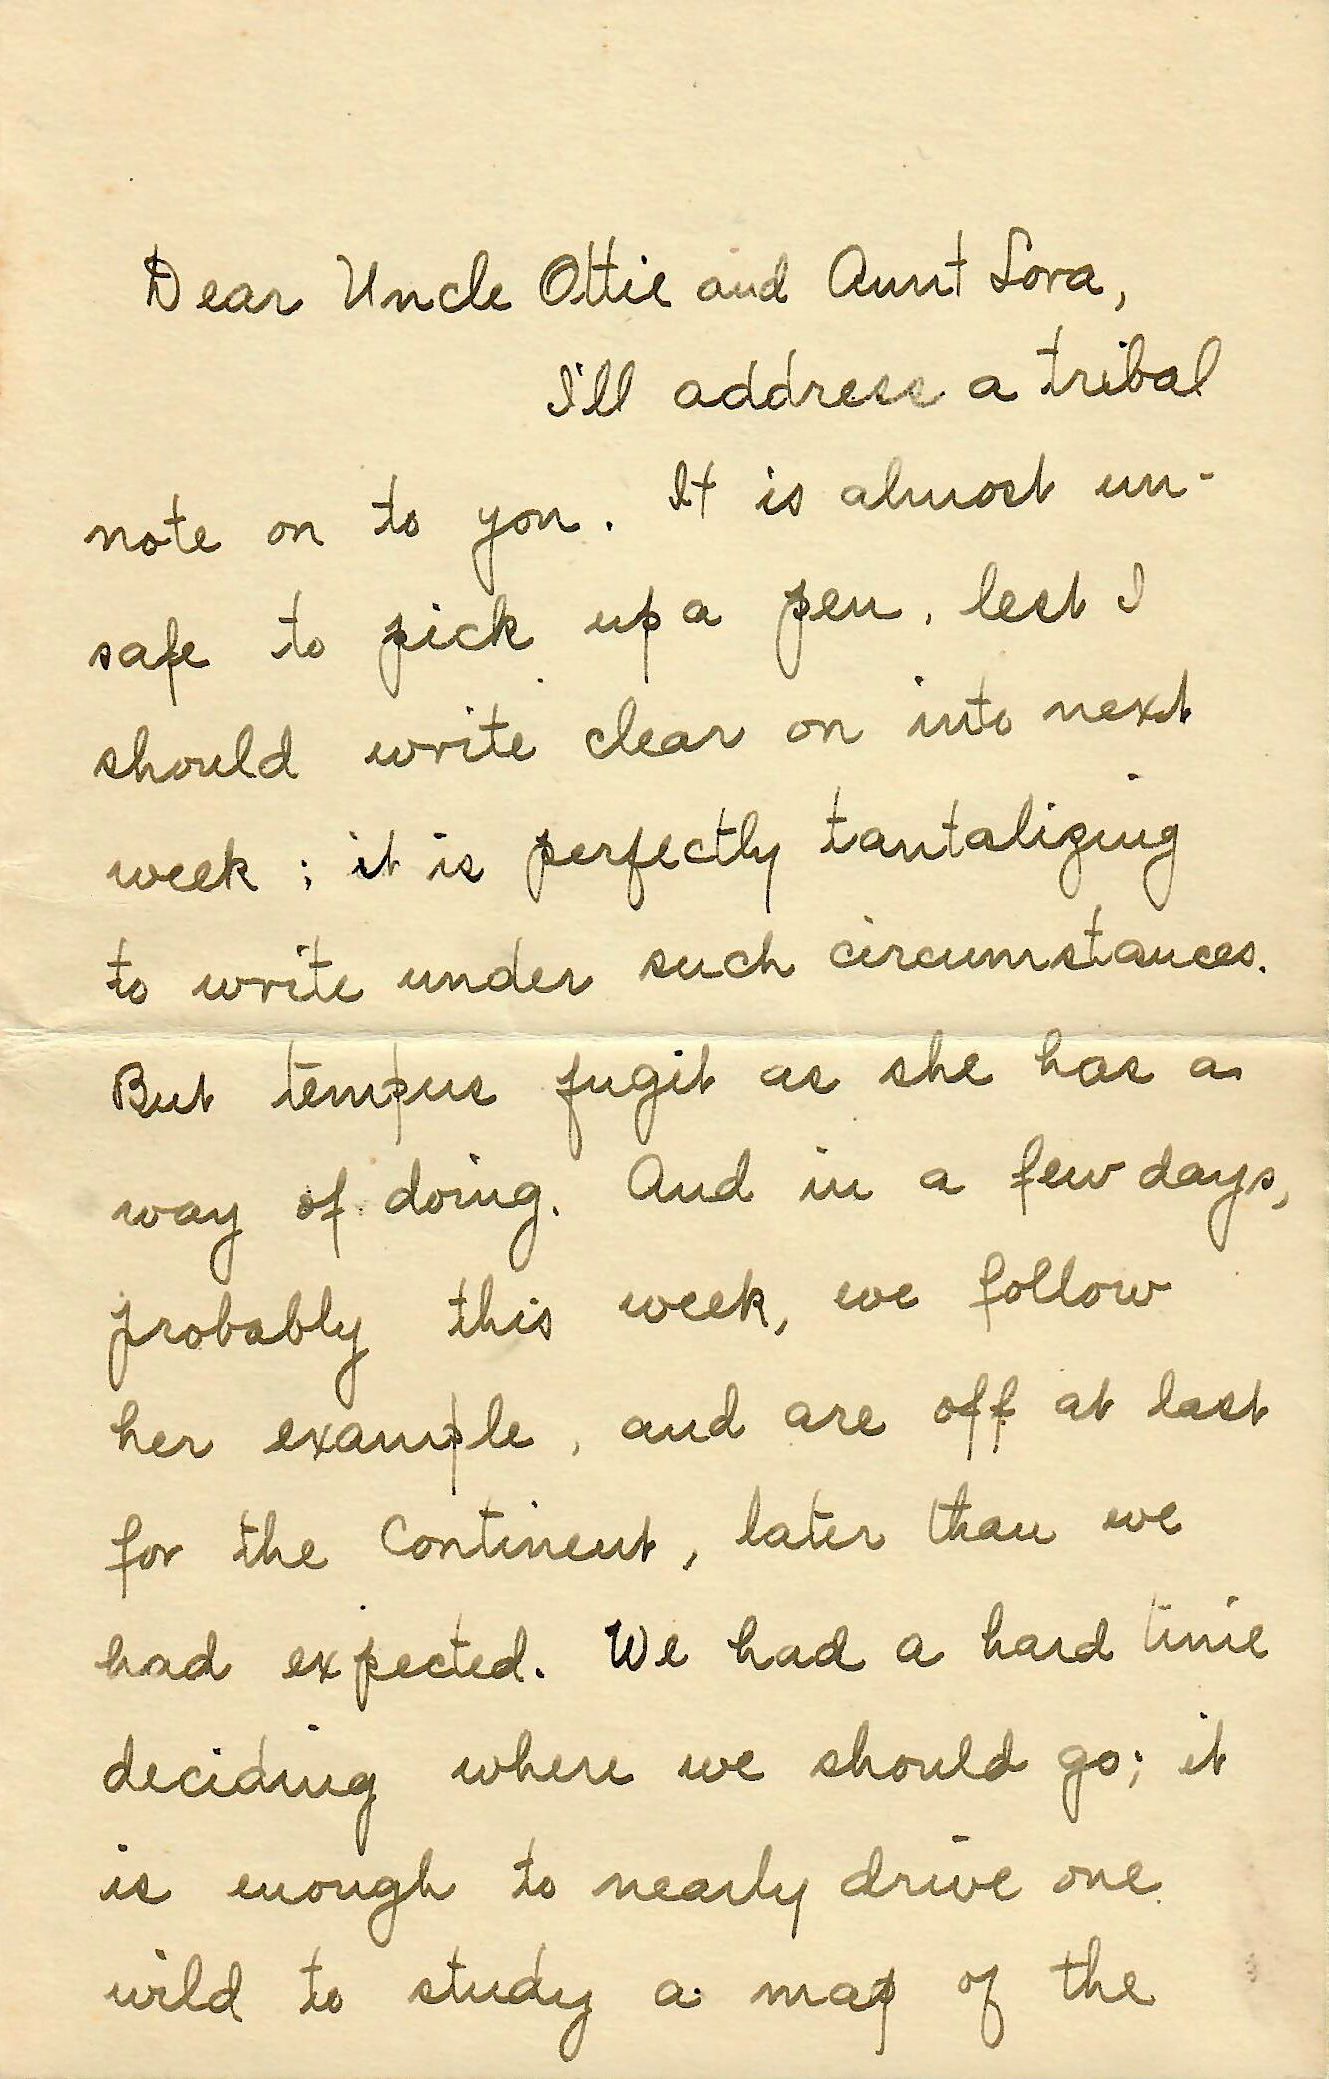 Dear Uncle Ottie and Aunt Lora,
I'll address a tribal
note on to you. It is almost un-
safe to pick up a pen, lest I
should write clear on into next
week; it is perfectly tantalizing
to write under such circumstances.
But tempus fugit as she has a
way of doing. And in a few days,
probably this week, we follow
her example, and are off at last
for the Continent, later than we
had expected. We had a hard time
deciding where we should go; it
is enough to nearly drive one
wild to study a map of the